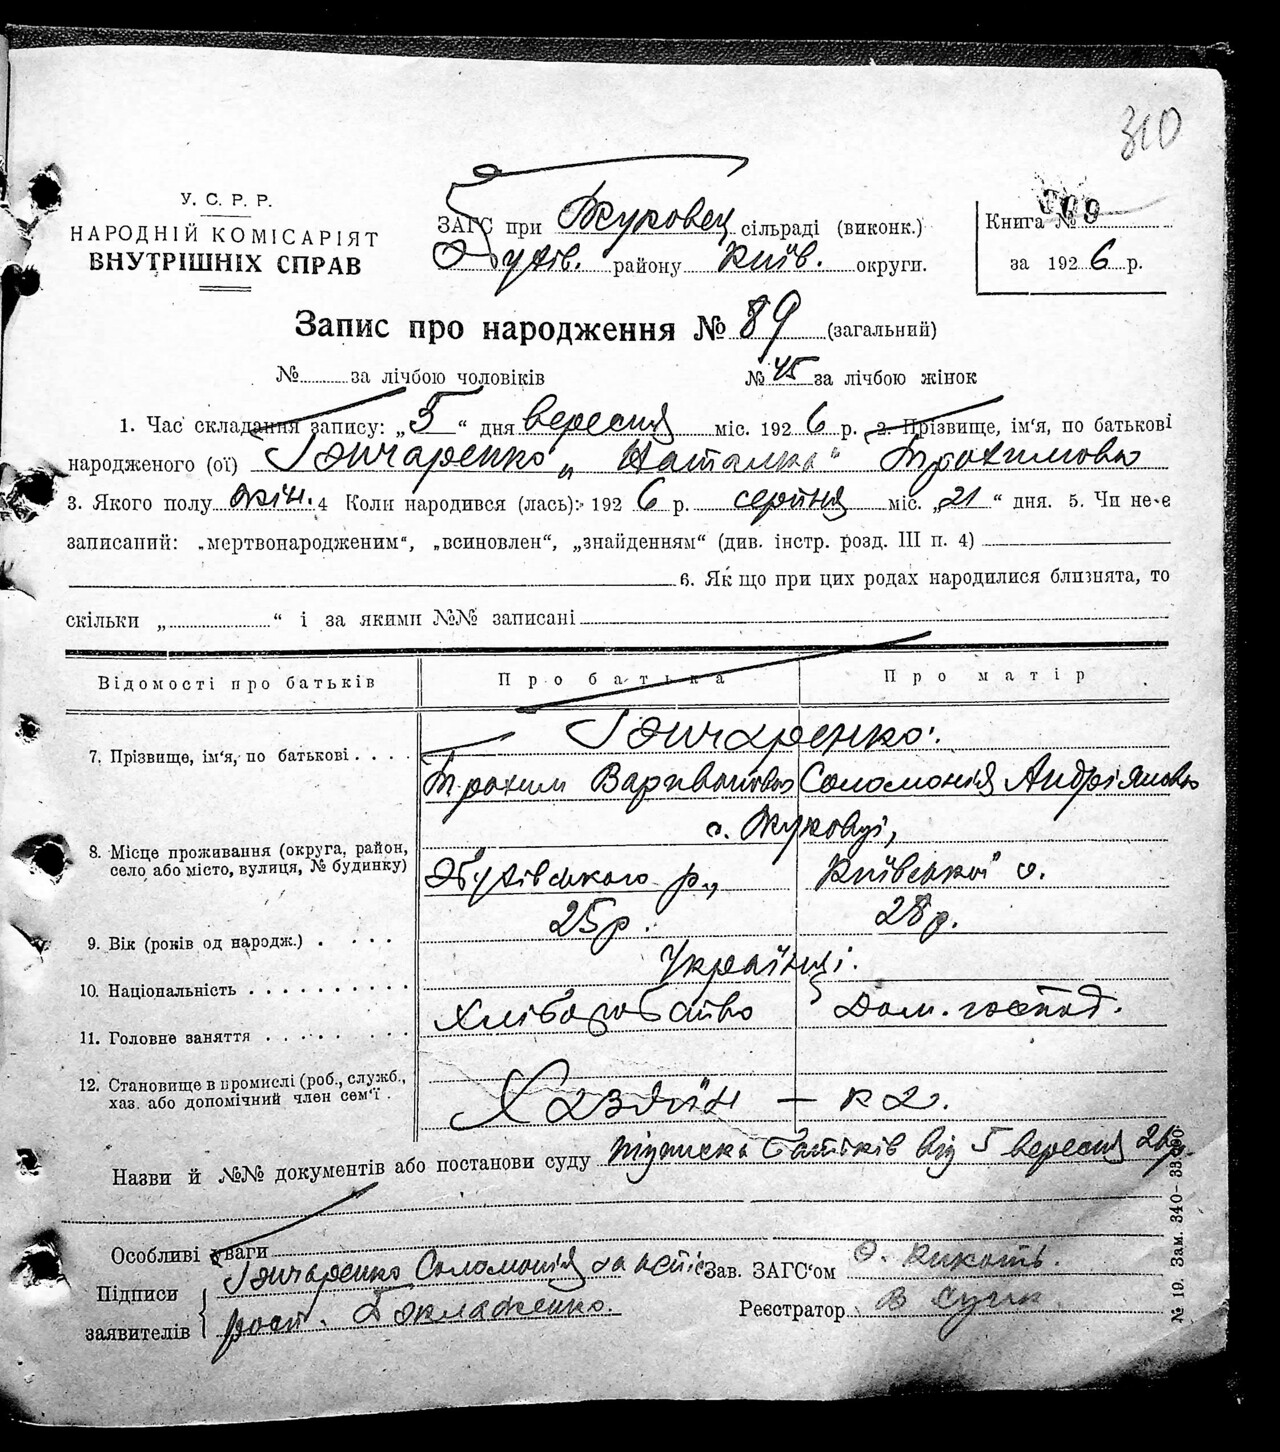 310
У. С. Р. Р.
НАРОДНІЙ КОМІСАРІЯТ
ВНУТРІШНІХ СПРАВ
ЗАГС при Жуковец сільраді (виконк.)
Обухів. району Київ. округи.
Книга №
за 1926 р.
Запис про народження № 89 (загальний)
№ за лічбою чоловіків № 45 за лічбою жінок
1. Час складання запису: „5“ дня вересня міс. 1926 р. 2. Прізвище, ім'я, по батькові
народженого (ої) Гончаренко „Наталка“ Трохимовна
3. Якого полу жін. 4 Коли народився (лась): 1926 р. серпня міс. „21“ дня. 5. Чи не є
записаний: „мертвонародженим“, „всиновлен“, „знайденням“ (див. інстр. розд. III п. 4)
6. Як що при цих родах народилися близнята, то
скільки „ “ і за якими №№ записані
Відомості про батьків Про батька Про матір
7. Прізвище, ім'я, по батькові . . . . Гончаренко.
Трохим Соломонія Андріяновна
8. Місце проживання (округа, район,
село або місто, вулиця, № будинку)
с. Жуковці,
Обухівського р., Київської о.
9. Вік (років од народж.) . . . . 25 р. 28 р.
10. Національність . . . . . . . . . . Українці.
11. Головне заняття . . . . . . . . Хліборобство Дом. господ.
12. Становище в промислі (роб., служб.,
хаз. або допомічний член сем'ї . Хазяїн — ка.
Назви й №№ документів або постанови суду батьків від 5 вересня 26 р.
Особливі уваги
Підписи
заявителів
Гончаренко Соломонія
Зав. ЗАГС'ом
Реєстратор
№ 19. Зам. 340—